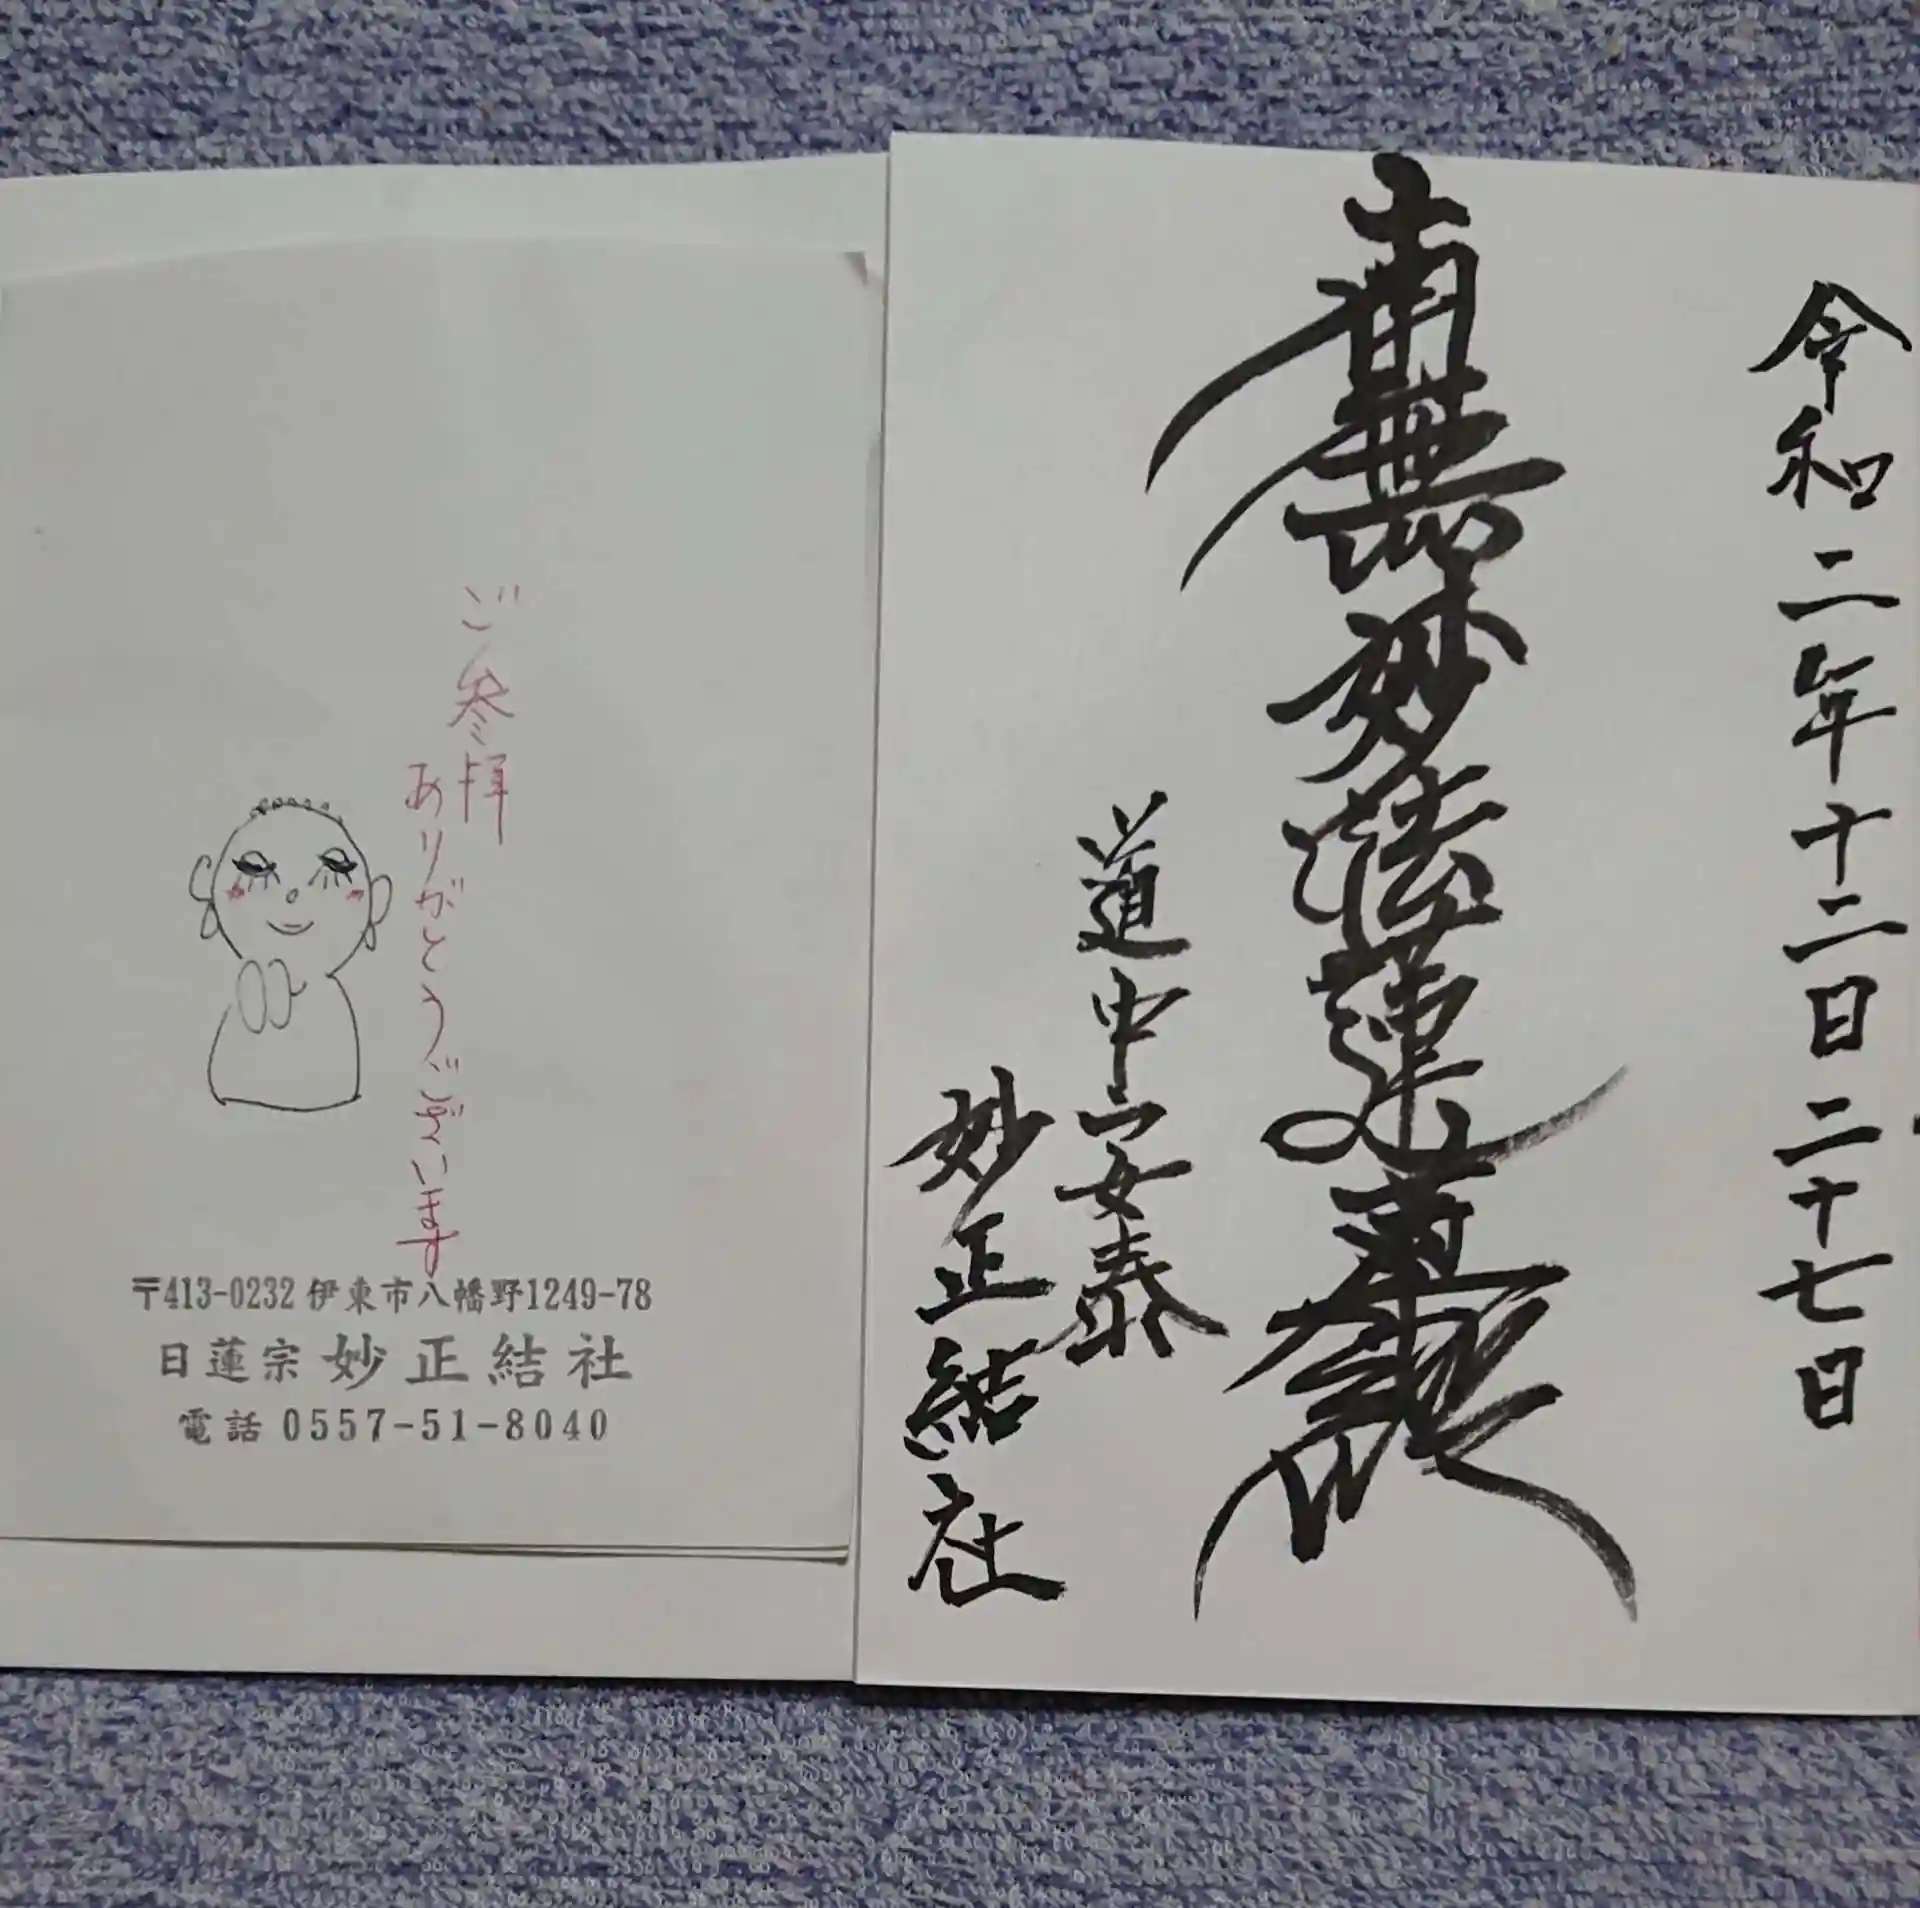 令和二年十二日二十七日
南無妙法蓮華経
道中安泰
妙正結社
ご参拝
ありがとうございます
〒413-0232 伊東市八幡野1249-78
日蓮宗 妙正結社
電話 0557-51-8040